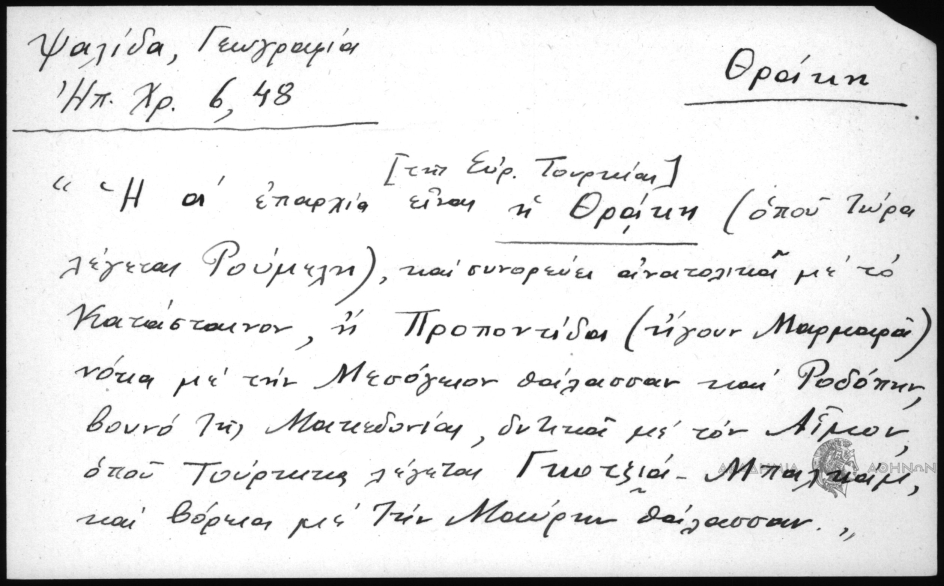 Ψαλίδα, Γεωγραφία
Ἠπ. Χρ. 6, 48
Θράκη
[τῆς Εὐρ. Τουρκίας]
“ Ἡ α΄ ἐπαρχία εἶναι ἡ Θράκη (ὁποῦ τώρα
λέγεται Ρούμελη), καὶ συνορεύει ἀνατολικᾶ μὲ τὸ
Κατάσταινον, ἢ Προποντίδα (ἤγουν Μαρμαρᾶ)
νότια μὲ τὴν Μεσόγειον θάλασσαν καὶ Ροδόπην,
βουνὸ τῆς Μακεδονίας, δυτικᾶ μὲ τὸν Αἷμον,
ὁποῦ Τούρκικα λέγεται Γκοτζιά - Μπαλκάμ,
καὶ βόρεια μὲ τὴν Μαύρην θάλασσαν. „
ΑΚΑΔΗΜΙΑ ΑΘΗΝΩΝ